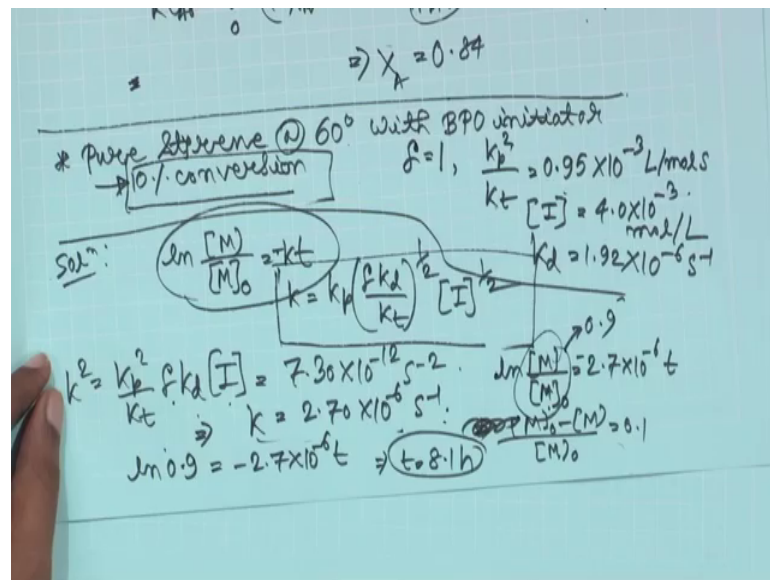 0
=) X_A = 0.84
* Pure Styrene @ 60° with BPO initiator
→ 10% conversion
f=1, k_p²/k_t = 0.95 X10⁻³ L/mol s
[I] = 4.0X10⁻³ mol/L
k_d = 1.92X10⁻⁶ s⁻¹
Solⁿ: ln [M]/[M]₀ = -kt
k = k_p (f k_d/k_t)^1/2 [I]^1/2
k² = k_p²/k_t f k_d [I] = 7.30X10⁻¹² s⁻².
=) k = 2.70 X10⁻⁶ s⁻¹.
ln [M]/[M]₀ = -2.7X10⁻⁶ t
→ 0.9
[M]₀-[M]/[M]₀ = 0.1
ln 0.9 = -2.7X10⁻⁶ t =) t = 8.1 h